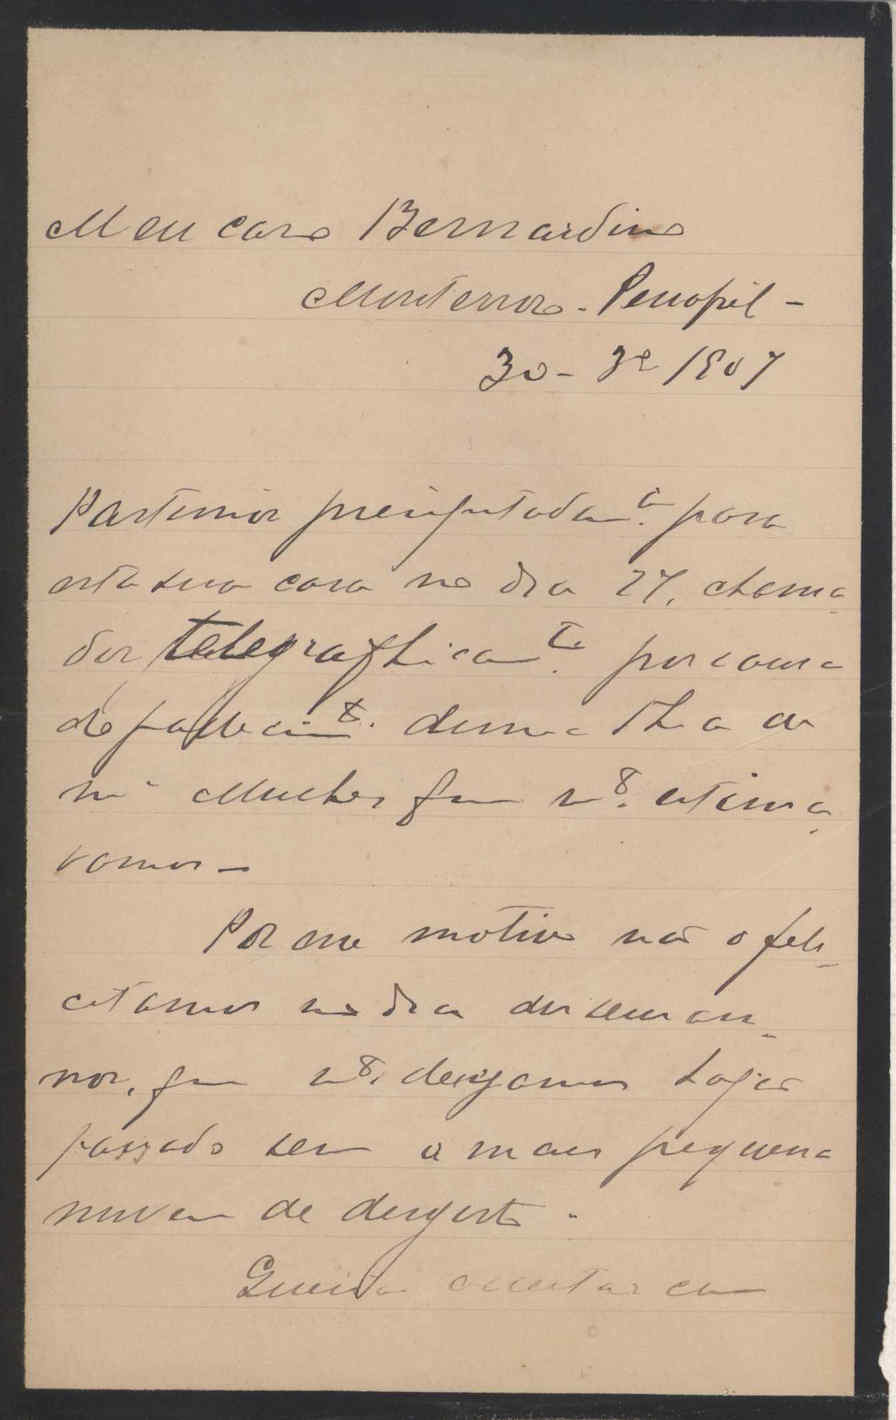 Meu caro Bernardino
Monterroso - Penafiel -
30 - 3º 1907
Partimos precipitadam.e para
esta sua casa no dia 27, chama
dos telegraphicam.te por causa
de fallecim.to duma Thia de
m.ª Mulher que m.to estima
vamos -
Por esse motivo não o feli
citamos no dia dos seus an
nos, que m.to desejamos haja
passado sem a mais pequena
nuvem de desgosto.
Queira acceitar com